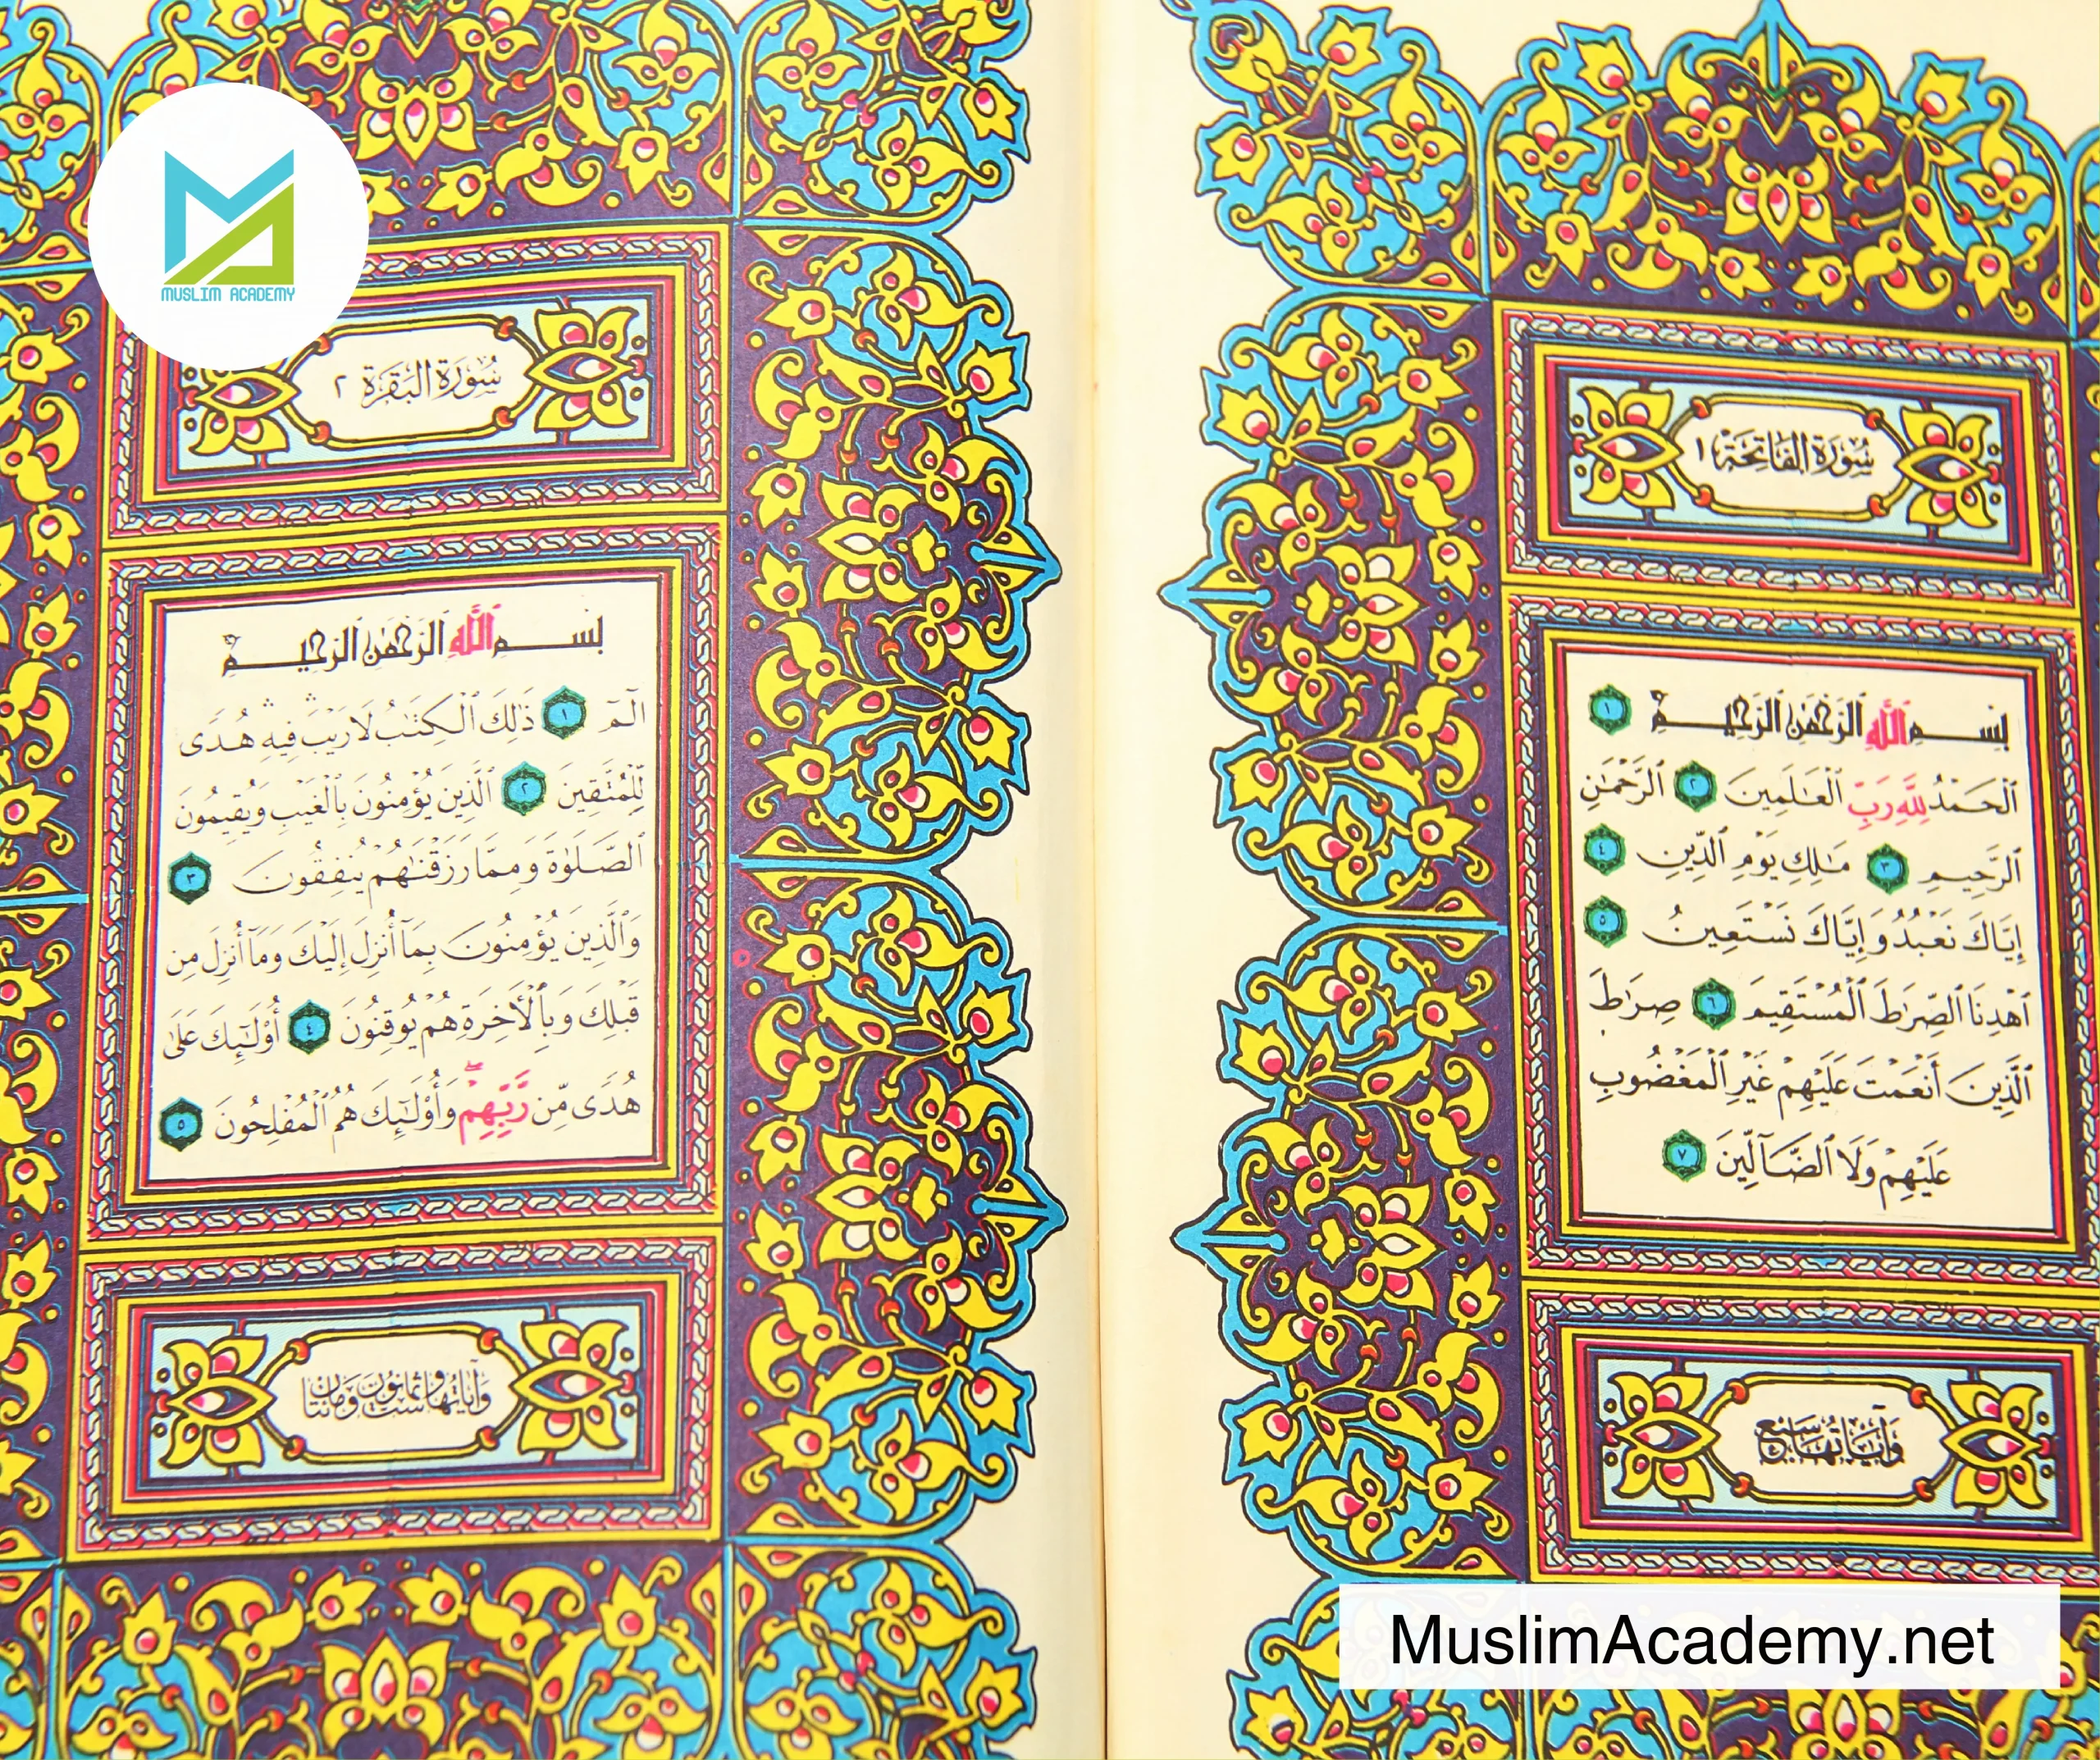 سُورَةُ الفَاتِحَةِ ١
بِسْمِ ٱللَّهِ ٱلرَّحْمَٰنِ ٱلرَّحِيمِ ١
ٱلْحَمْدُ لِلَّهِ رَبِّ ٱلْعَٰلَمِينَ ٢ ٱلرَّحْمَٰنِ
ٱلرَّحِيمِ ٣ مَٰلِكِ يَوْمِ ٱلدِّينِ ٤
إِيَّاكَ نَعْبُدُ وَإِيَّاكَ نَسْتَعِينُ ٥
ٱهْدِنَا ٱلصِّرَٰطَ ٱلْمُسْتَقِيمَ ٦ صِرَٰطَ
ٱلَّذِينَ أَنْعَمْتَ عَلَيْهِمْ غَيْرِ ٱلْمَغْضُوبِ
عَلَيْهِمْ وَلَا ٱلضَّآلِّينَ ٧
وَآيَاتُهَا سَبْعٌ
سُورَةُ البَقَرَةِ ٢
بِسْمِ ٱللَّهِ ٱلرَّحْمَٰنِ ٱلرَّحِيمِ
الٓمٓ ١ ذَٰلِكَ ٱلْكِتَٰبُ لَا رَيْبَ ۛ فِيهِ ۛ هُدًى
لِّلْمُتَّقِينَ ٢ ٱلَّذِينَ يُؤْمِنُونَ بِٱلْغَيْبِ وَيُقِيمُونَ
ٱلصَّلَوٰةَ وَمِمَّا رَزَقْنَٰهُمْ يُنفِقُونَ ٣
وَٱلَّذِينَ يُؤْمِنُونَ بِمَآ أُنزِلَ إِلَيْكَ وَمَآ أُنزِلَ مِن
قَبْلِكَ وَبِٱلْأَخِرَةِ هُمْ يُوقِنُونَ ٤ أُو۟لَٰٓئِكَ عَلَىٰ
هُدًى مِّن رَّبِّهِمْ ۖ وَأُو۟لَٰٓئِكَ هُمُ ٱلْمُفْلِحُونَ ٥
وَآيَاتُهَا سِتٌّ وَثَمَانُونَ وَمَائَتَانِ
MUSLIM ACADEMY
MuslimAcademy.net